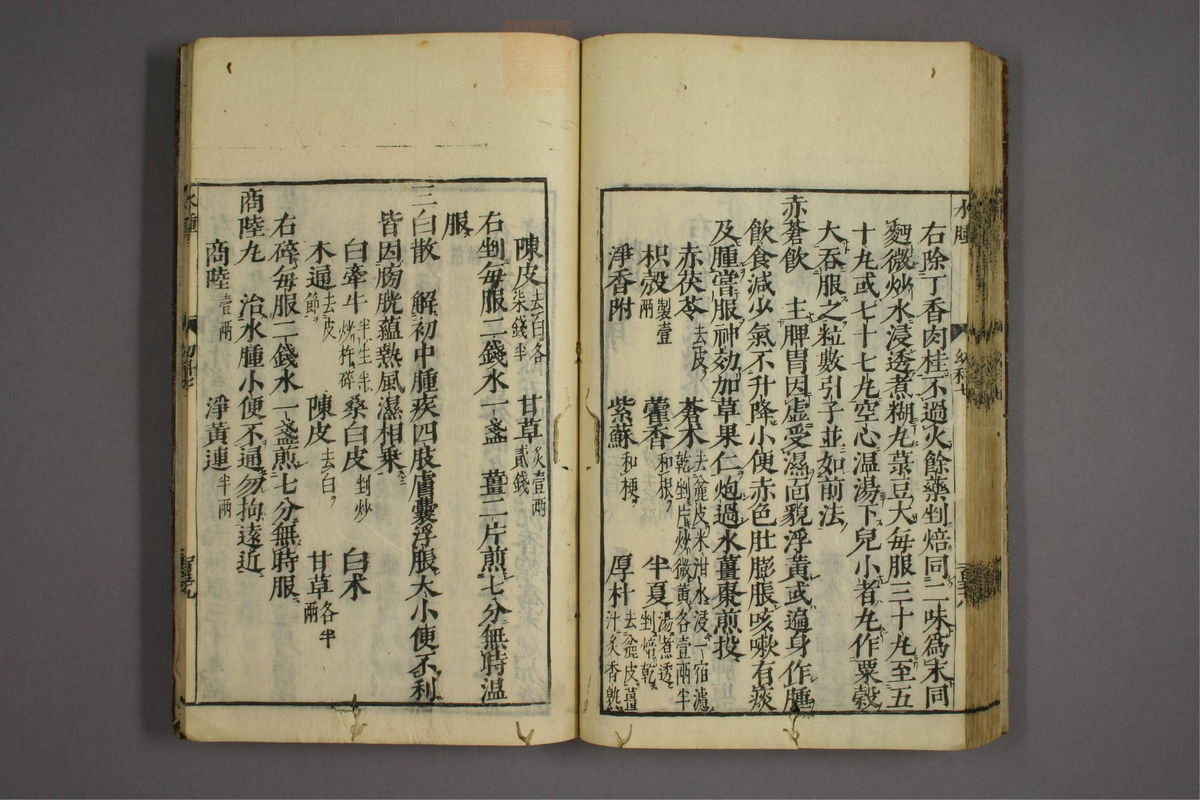 水腫
右除丁香肉桂不過火餘藥剉焙同二味爲末同
麪微炒水浸透煮糊丸菉豆大每服三十丸至五
十丸或七十七丸空心温湯下兒小者丸作粟穀
大吞服之粒數引子並如前法
赤蒼飲　主脾胃因虚受濕面貌浮黃或遍身作腫
飲食減少氣不升降小便赤色肚膨脹咳嗽有痰
及腫當服神効加草果仁炮過水薑棗煎投
赤茯苓去皮　蒼朮去麄皮米泔水浸一宿濾乾剉片炒微黃各壹兩半
枳殼製壹兩　藿香和根　半夏湯煮透剉焙乾
淨香附　紫蘇和梗　厚朴去麄皮薑汁炙香乾
陳皮去白各柒錢半　甘草炙壹兩貳錢
右剉每服二錢水一盞　薑二片煎七分無時温
服
三白散　解初中腫疾四肢膚囊浮脹大小便不利
皆因膀胱蘊熱風濕相乗
白牽牛半生半炒杵碎　桑白皮剉炒　白朮
木通去皮節　陳皮去白　甘草各半兩
右碎每服二錢水一盞煎七分無時服
商陸丸　治水腫小便不通勿拘遠近
商陸壹兩　淨黃連半兩
水腫